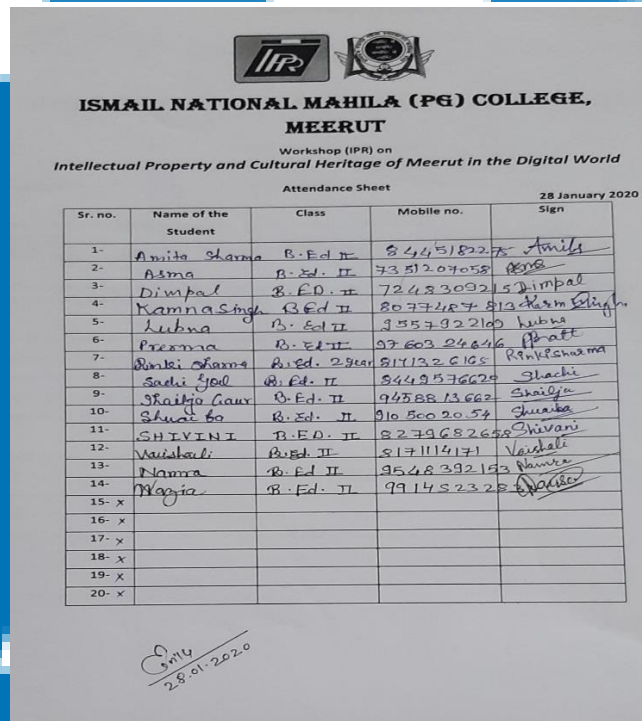 IPR
ISMAIL NATIONAL MAHILA (PG) COLLEGE,
MEERUT
Workshop (IPR) on
Intellectual Property and Cultural Heritage of Meerut in the Digital World
Attendance Sheet
28 January 2020
Sr. no. Name of the Student Class Mobile no. Sign
1- Amita Sharma B.Ed II 8445182275 Amita
2- Asma B.Ed. II 7351207058 Asma
3- Dimpal B.ED. II 7248309215 Dimpal
4- Kamna Singh BEd II 8077487813
5- Lubna B.Ed II 9557922109 Lubna
6- Prerrna B.Ed II 9760324646
7- Rinki Sharma B.Ed. 2 year 8171326165 Rinkisharma
8- Sachi Goel B.Ed. II 8449576629 Shachi
9- Shailja Gaur B.Ed. II 9458813662 Shailja
10- B.Ed. II 9105002054
11- SHIVINI B.ED. II 8279682658 Shivani
12- Vaishali B.Ed. II 8171114171 Vaishali
13- Namra B.Ed II 9548392153 Namra
14- B.Ed. II
15- x
16- x
17- x
18- x
19- x
20- x
28.01.2020